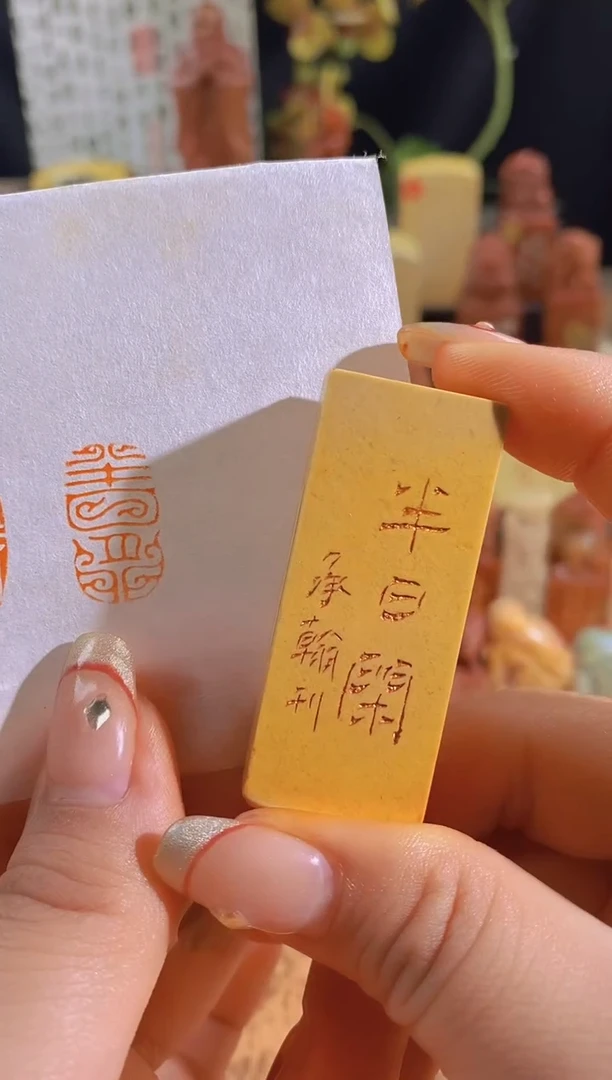 半日閑
承翰刊